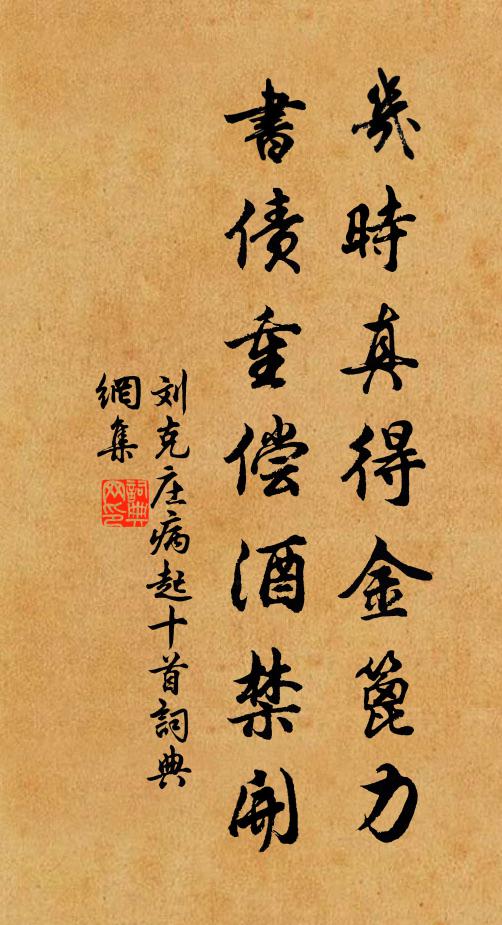 幾時真得金篦力
書债重偿酒禁開
刘克庄病起十首詞典
網集
詞典
网印